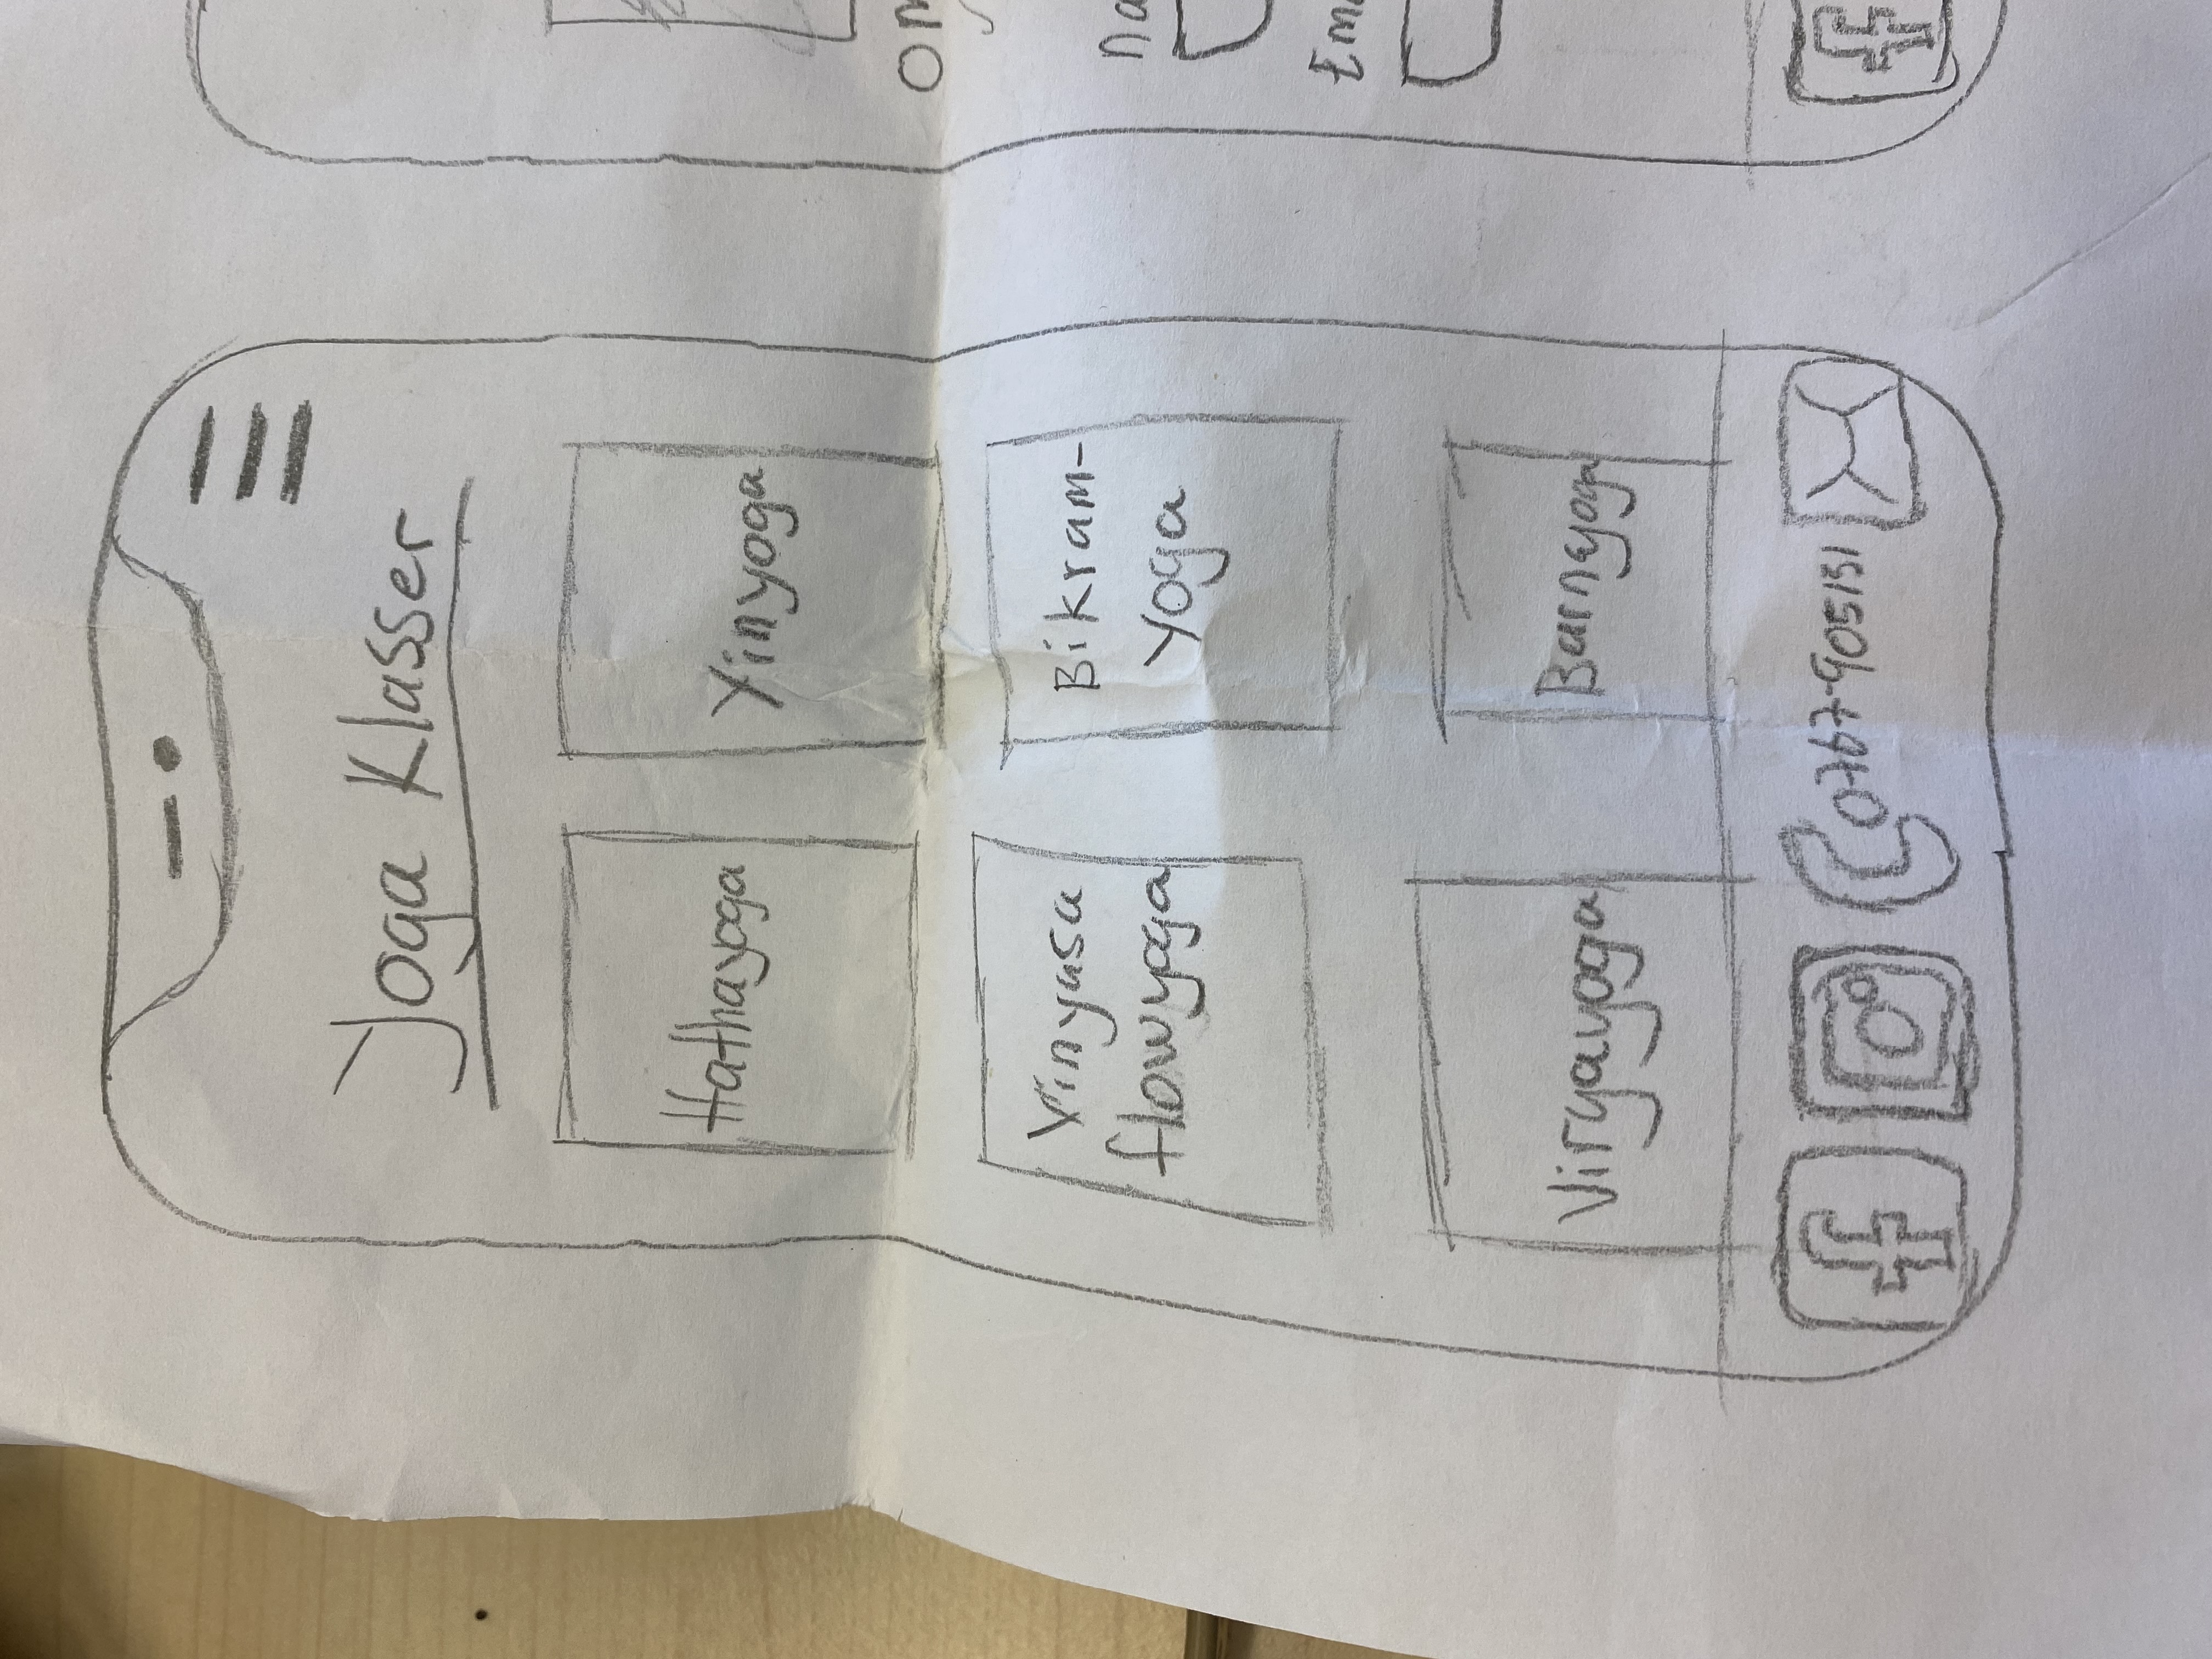 Yoga Klasser
Hathayoga
Yinyoga
Vinyasa
flowyoga
Bikram-
yoga
Viryayoga
Barnyoga
f
0767-905151
om
na
Ema
f